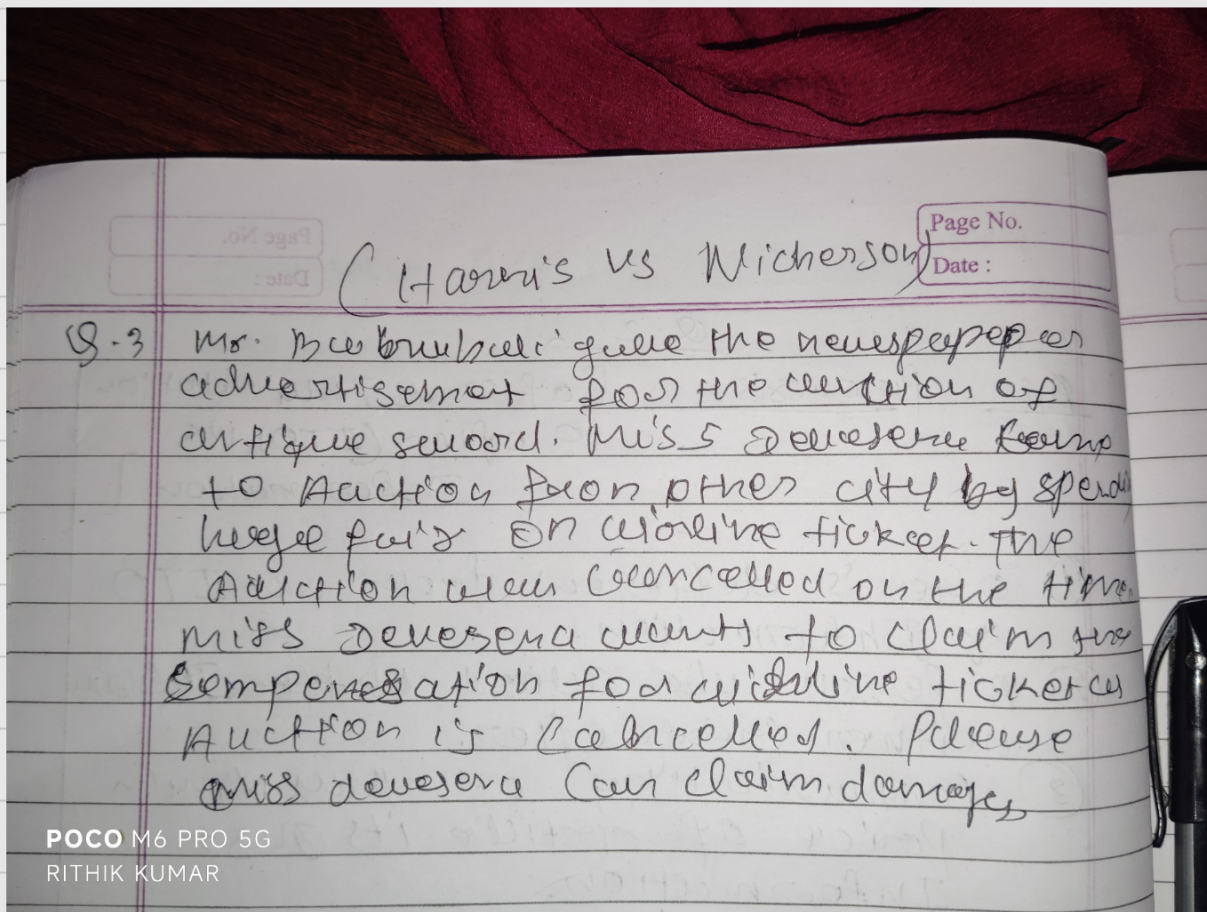 Page No.
Date :
(Harris vs Nickerson)
Q.3 Mr. Bahubali gave the newspaper
advertisement for the auction of
antique sword. Miss Devesena
to Auction from other city by spendi
huge fair on airline ticket. The
Auction was cancelled on the time
miss Devesena wants to claim the
Compensation for airline ticket as
Auction is Cancelled. Please
miss devesena Can claim damages
POCO M6 PRO 5G
RITHIK KUMAR